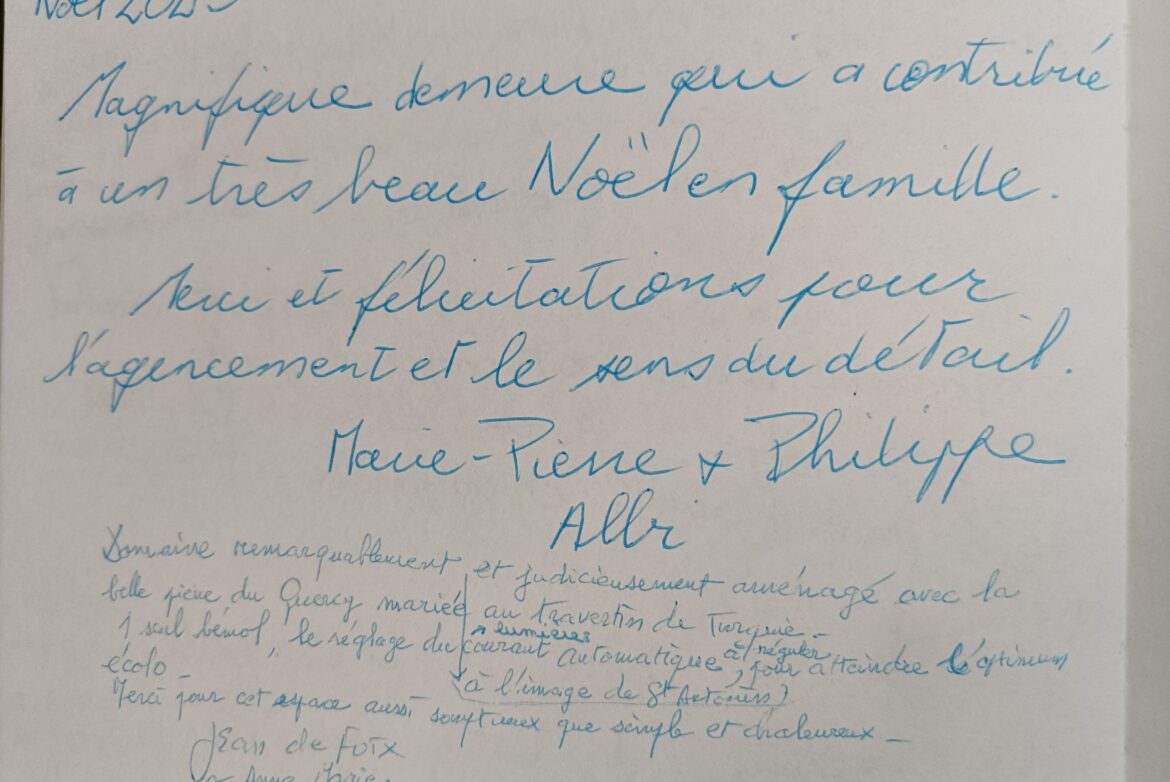 Noël 202
Magnifique demeure qui a contribué
à un très beau Noël en famille.
Merci et félicitations pour
l'agencement et le sens du détail.
Marie-Pierre & Philippe
Domaine remarquablement et judicieusement aménagé avec la
belle pierre du Quercy mariée au travertin de Turquie.-
1 seul bémol, le réglage du courant automatique à réguler, pour atteindre l'optimum
lumières
écolo -
(à l'image de St Antonin)
Merci pour cet espace aussi somptueux que simple et chaleureux -
Jean de Foix
Anne Marie